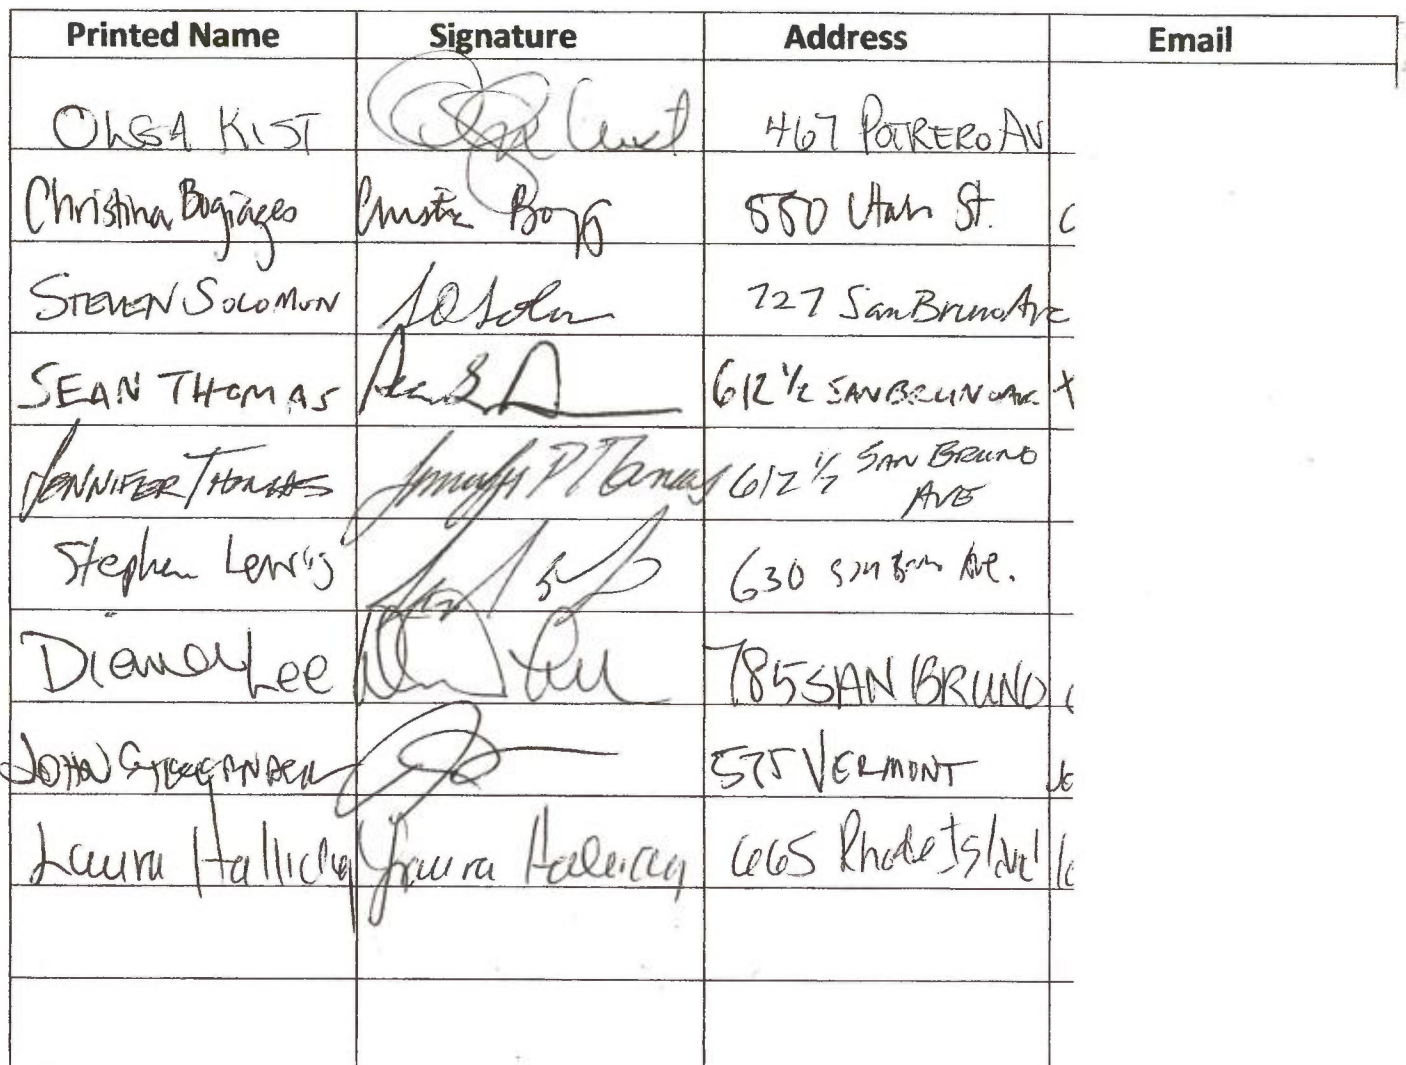 Printed Name Signature Address Email
OLGA KIST 467 POTRERO AV
Christina Bogiages 550 Utah St. C
STEVEN SOLOMON 727 San Bruno Ave
SEAN THOMAS 612 1/2 SAN BRUNO AVE
JENNIFER THOMAS Jennifer P Thomas 612 1/2 SAN BRUNO
AVE
Stephen Lewis 630 San Bruno Ave.
Diana Lee 785 SAN BRUNO
JOHN 575 VERMONT
Laura Hallicay Laura 665 Rhode Island